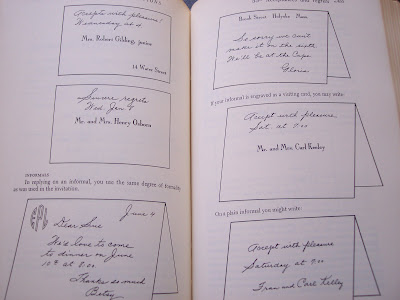 Accepts with pleasure!
Wednesday at 4
Mrs. Robert Gilding, junior
14 Water Street
Sincere regrets
Wed. Jan 4
Mr. and Mrs. Henry Osborn
INFORMALS
In replying on an informal, you use the same degree of formality
as was used in the invitation.
June 4
Dear Sue
We'd love to come
to dinner on June
10th at 8:00
Thanks so much
Betsy
Street Holyoke Mass
So sorry we can't
make it on the
We'll be at the Cape
Gloria
If your informal is engraved as a visiting card, you may write:
Accept with pleasure
Sat. at 7:00
Mr. and Mrs. Carl Keeley
On a plain informal you might write:
Accept with pleasure
Saturday at 7:00
Fran and Carl Kelly